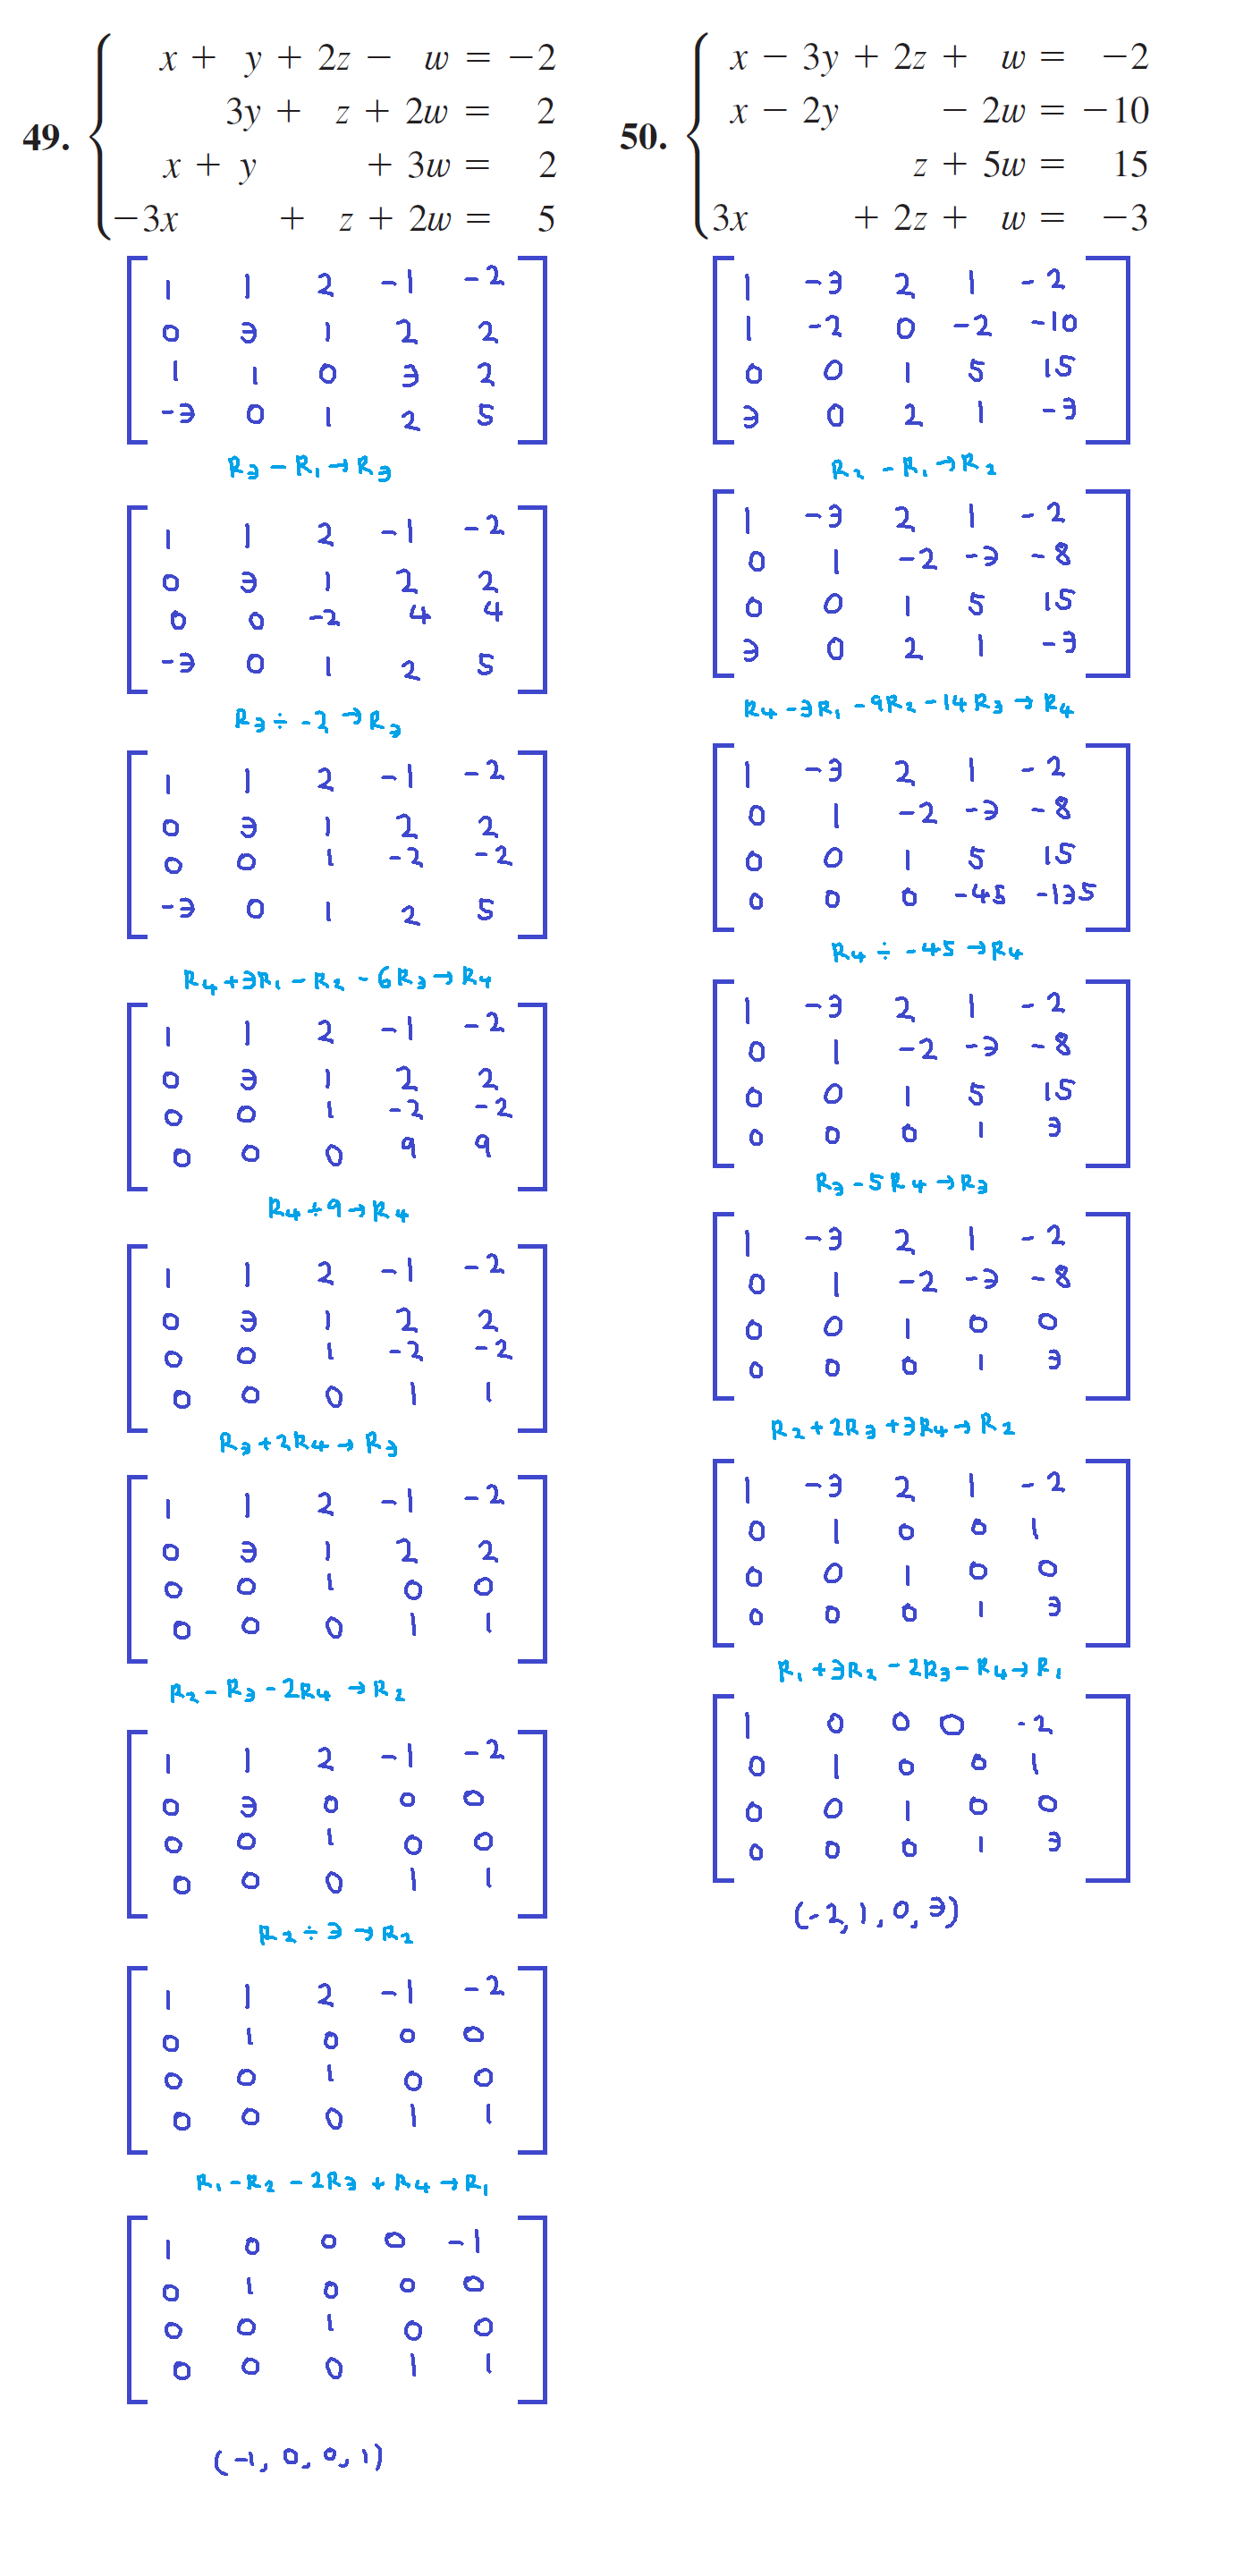 49.
x + y + 2z − w = −2
3y + z + 2w = 2
x + y + 3w = 2
−3x + z + 2w = 5
1 1 2 -1 -2
0 3 1 2 2
1 1 0 3 2
-3 0 1 2 5
R₃ - R₁ → R₃
1 1 2 -1 -2
0 3 1 2 2
0 0 -2 4 4
-3 0 1 2 5
R₃ ÷ -2 → R₃
1 1 2 -1 -2
0 3 1 2 2
0 0 1 -2 -2
-3 0 1 2 5
R₄ + 3R₁ - R₂ - 6R₃ → R₄
1 1 2 -1 -2
0 3 1 2 2
0 0 1 -2 -2
0 0 0 9 9
R₄ ÷ 9 → R₄
1 1 2 -1 -2
0 3 1 2 2
0 0 1 -2 -2
0 0 0 1 1
R₃ + 2R₄ → R₃
1 1 2 -1 -2
0 3 1 2 2
0 0 1 0 0
0 0 0 1 1
R₂ - R₃ - 2R₄ → R₂
1 1 2 -1 -2
0 3 0 0 0
0 0 1 0 0
0 0 0 1 1
R₂ ÷ 3 → R₂
1 1 2 -1 -2
0 1 0 0 0
0 0 1 0 0
0 0 0 1 1
R₁ - R₂ - 2R₃ + R₄ → R₁
1 0 0 0 -1
0 1 0 0 0
0 0 1 0 0
0 0 0 1 1
(-1, 0, 0, 1)
50.
x − 3y + 2z + w = −2
x − 2y − 2w = −10
z + 5w = 15
3x + 2z + w = −3
1 -3 2 1 -2
1 -2 0 -2 -10
0 0 1 5 15
3 0 2 1 -3
R₂ - R₁ → R₂
1 -3 2 1 -2
0 1 -2 -3 -8
0 0 1 5 15
3 0 2 1 -3
R₄ - 3R₁ - 9R₂ - 14R₃ → R₄
1 -3 2 1 -2
0 1 -2 -3 -8
0 0 1 5 15
0 0 0 -45 -135
R₄ ÷ -45 → R₄
1 -3 2 1 -2
0 1 -2 -3 -8
0 0 1 5 15
0 0 0 1 3
R₃ - 5R₄ → R₃
1 -3 2 1 -2
0 1 -2 -3 -8
0 0 1 0 0
0 0 0 1 3
R₂ + 2R₃ + 3R₄ → R₂
1 -3 2 1 -2
0 1 0 0 1
0 0 1 0 0
0 0 0 1 3
R₁ + 3R₂ - 2R₃ - R₄ → R₁
1 0 0 0 -2
0 1 0 0 1
0 0 1 0 0
0 0 0 1 3
(-2, 1, 0, 3)